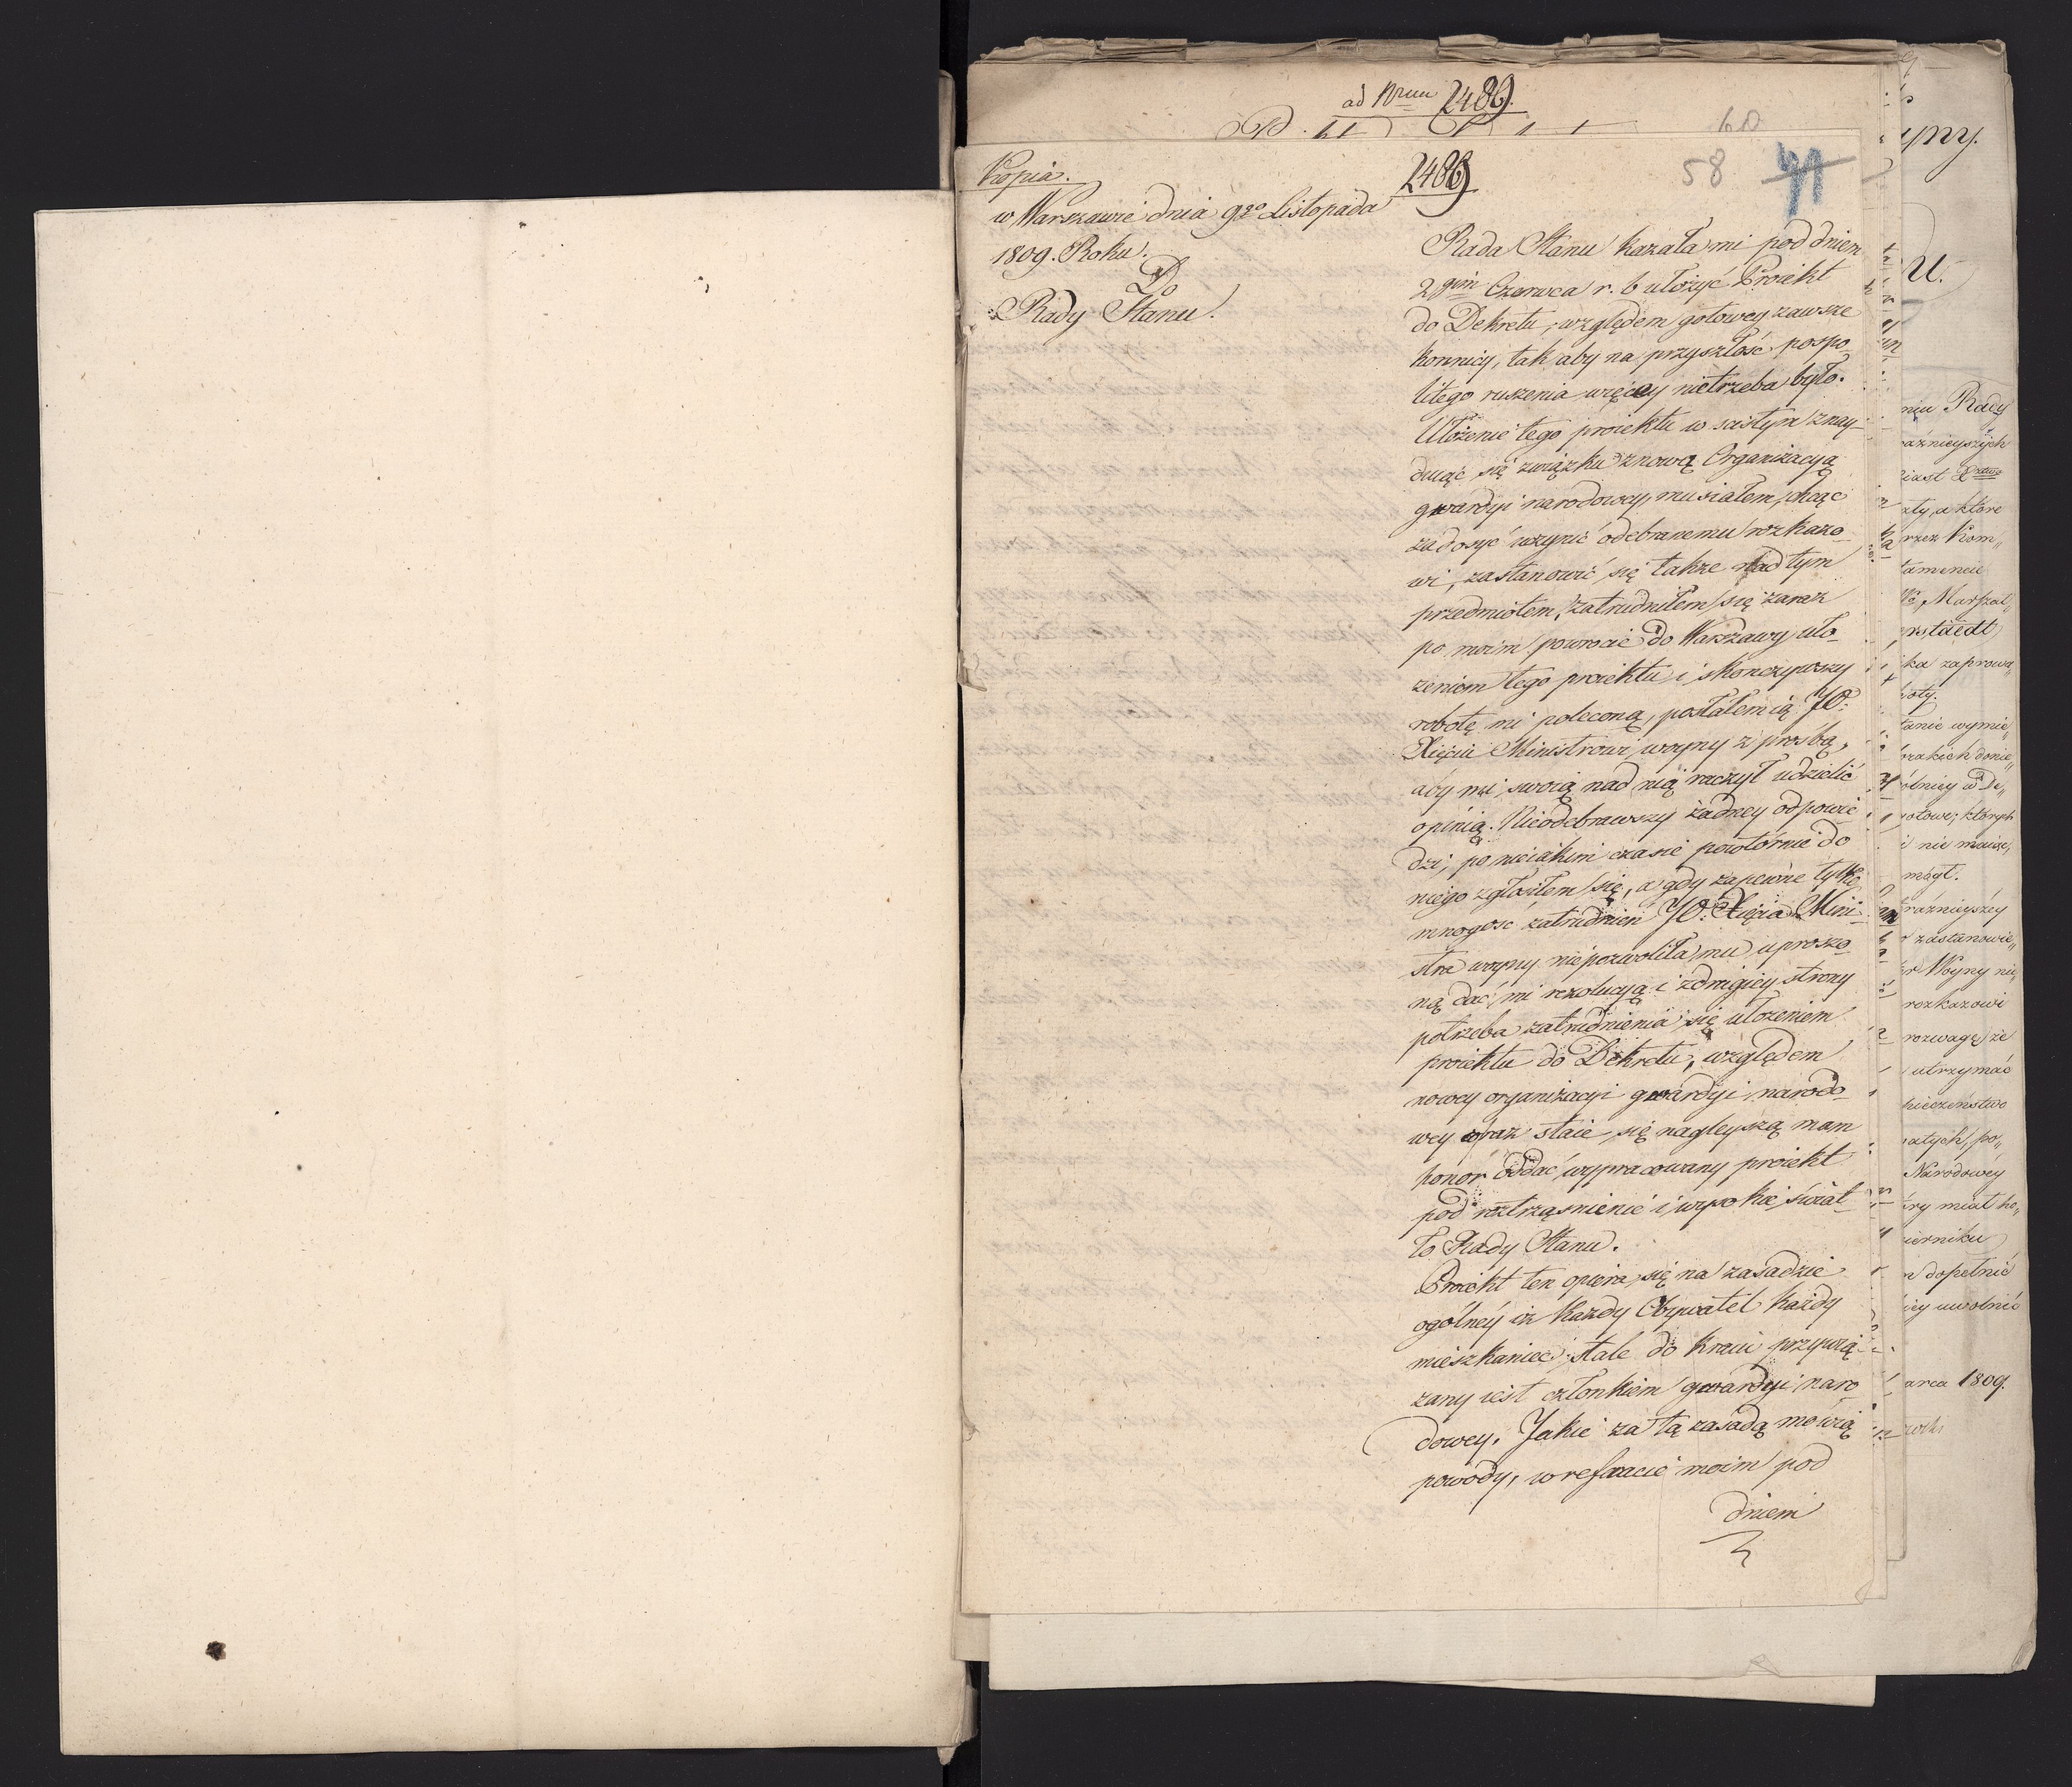 ad Nrum 2486.
60
Kopia.
2486
58 41
w Warszawie dnia 9go Listopada
1809. Roku.
Do
Rady Stanu.
Rada Stanu kazała mi pod dniem
2gim Czerwca r. b ułożyć Proiekt
do Dekretu, względem gotowey zawsze
konnicy, tak aby na przyszłość pospo-
litego ruszenia więcey nietrzeba było.
Ułożenie tego proiektu w scisłym znay-
duiąc się związku z nową Organizacyą
gwardyi narodowey, musiałem, chcąc
zadosyć uczynić odebranemu rozkazo-
wi, zastanowić się także nad tym
przedmiotem, zatrudniłem się zaraz
po moim powrocie do Warszawy uło-
żeniem tego proiektu i skonczywszy
robotę mi poleconą, posłałem ią JO:
Xięciu Ministrowi woyny z prosbą,
aby mi swoią nad nią raczył udzielić
opinią. Nieodebrawszy żadney odpowie
dzi, po nieiakim czasie powtórnie do
niego zgłosiłem się, a gdy zapewne tylko
mnogosc zatrudnień JO. Xięcia Mini-
stra woyny niepozwoliła mu uproszo-
ną dać mi rezolucyą i z drugiey strony
potrzeba zatrudnienia się ułożeniem
proiektu do Dekretu, względem
nowey organizacyi gwardyi narodo-
wey coraz staie się nagleyszą mam
honor oddać wypracowany proiekt
pod roztrząsnienie i wysokie świat-
ło Rady Stanu.
Proiekt ten opiera się na zasadzie
ogólney iż każdy Obywatel każdy
mieszkaniec stale do kraiu przywią-
zany iest członkiem gwardyi naro
dowey. Jakie za tą zasadą mówią
powody, w referacie moim pod
dniem
yny.
u.
niu Rady
ażnieyszych
iast Xztwa
zły, a które
rzez Kom„
tamencie
Marszał„
erstaedt
ka zaprowa„
oty.
tanie wymie„
rakich donie„
ólniey w De„
otowe; których
i nie maiąc,
mógł.
raźnieyszey
zastanowie„
r Woyny nie„
rozkazowi
rozwagę że
utrzymać
pieczeństwo
atych, po„
Narodowey
ry miał ho„
ierniku
n dopełnić
iey uwolnić
arca 1809.